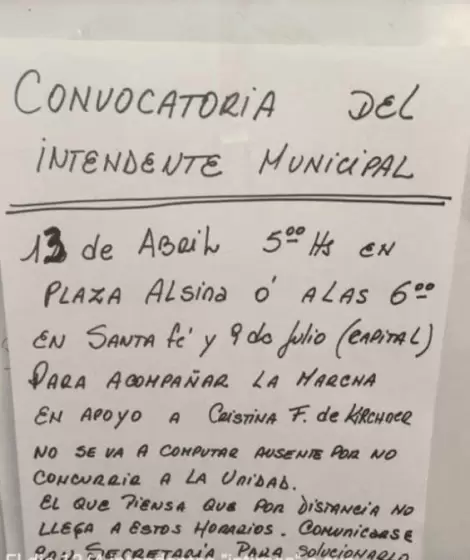 CONVOCATORIA DEL
INTENDENTE MUNICIPAL
13 de ABRIL 5⁰⁰ Hs EN
PLAZA ALSINA Ó A LAS 6⁰⁰
EN SANTA Fé Y 9 do Julio (CAPITAL)
PARA ACOMPAÑAR LA MARCHA
EN APOYO A CRISTINA F. de KIRCHNER
NO SE VA A COMPUTAR AUSENTE POR NO
CONCURRIR A LA UNIDAD.
EL QUE PIENSA QUE POR DISTANCIA NO
LLEGA A ESTOS HORARIOS. COMUNICARSE
SECRETARÍA PARA SOLUCIONARLO